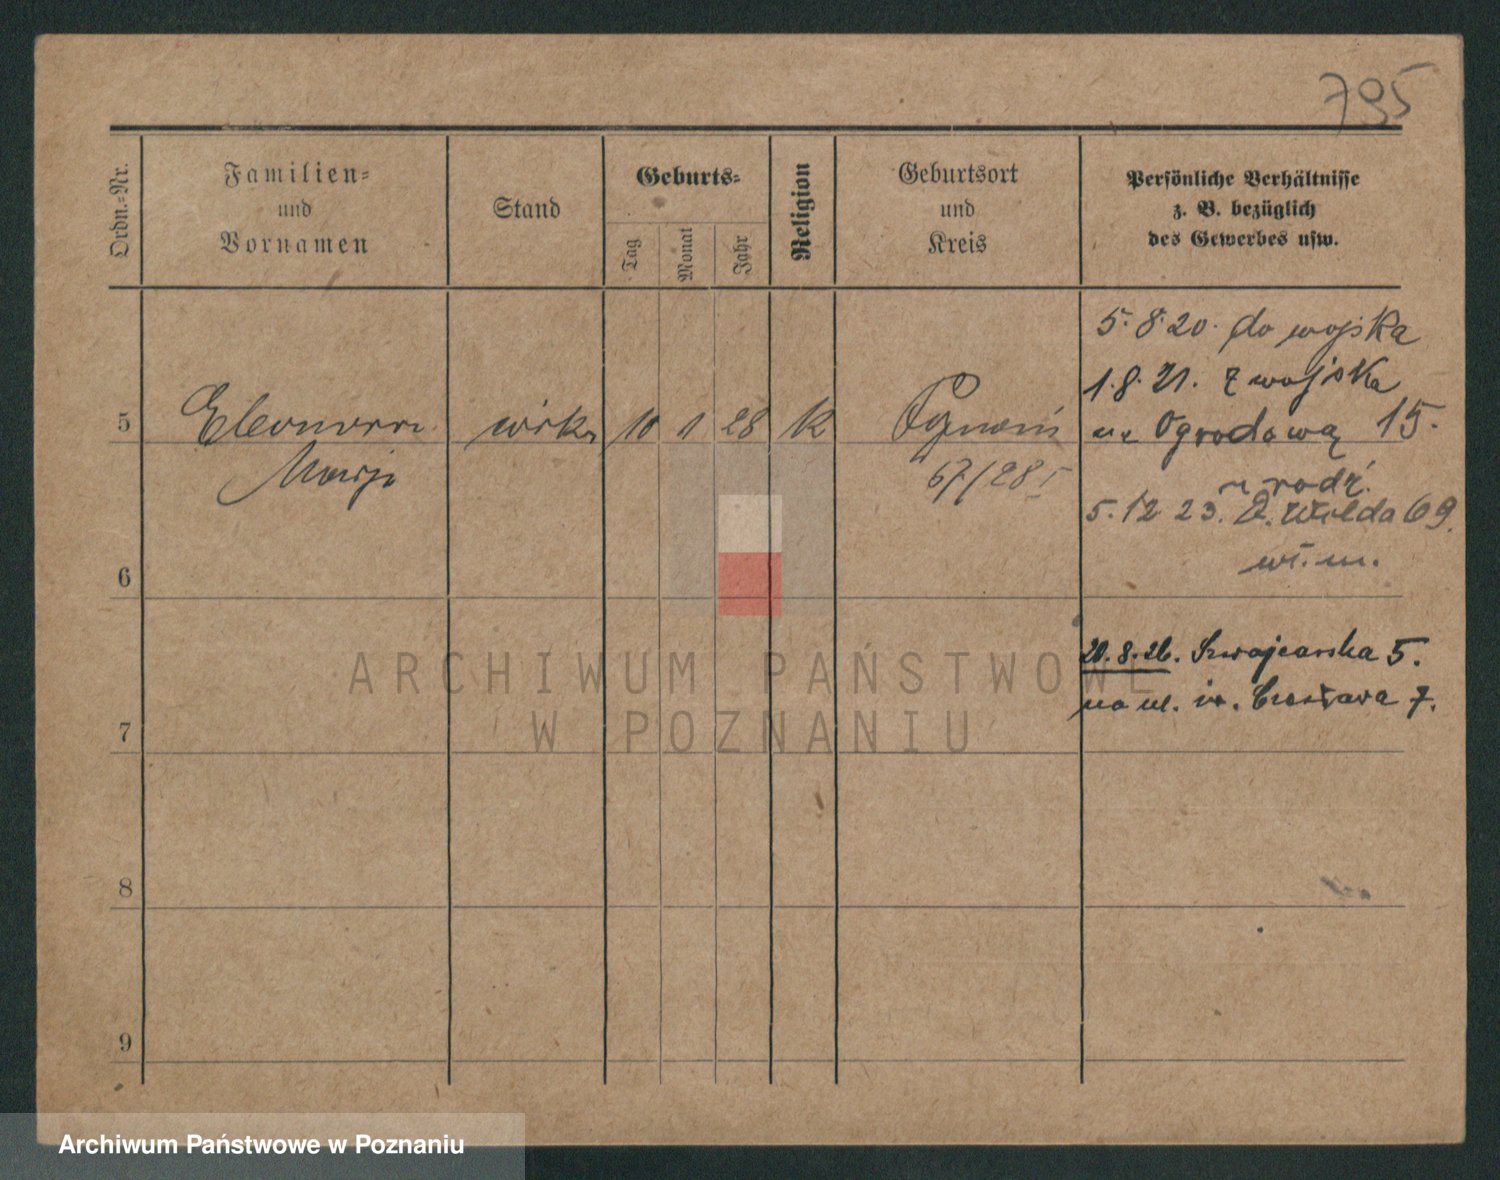 795
Ordn.-Nr.
Familien-
und
Vornamen
Stand
Geburts-
Tag
Monat
Jahr
Religion
Geburtsort
und
Kreis
Persönliche Verhältnisse
z. B. bezüglich
des Gewerbes usw.
5. 8. 20. do wojska
1. 8. 21. z wojska
na Ogrodową 15.
5
Eleonora córka 10 1 28 K Poznań
Marja
67/28 I
u rodz.
5. 12 23. G. Wilda 69.
wł. m.
6
20. 8. 26. Szwajcarska 5.
na ul. św. Czesława 7.
7
8
9
ARCHIWUM PAŃSTWOWE
W POZNANIU
Archiwum Państwowe w Poznaniu